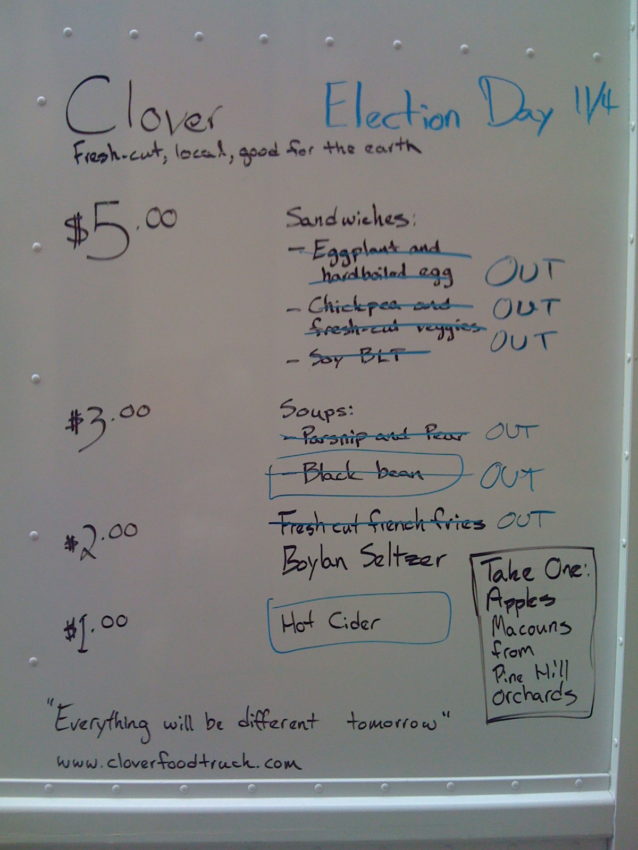 Clover Election Day 11/4
Fresh-cut, local, good for the earth
$5.00 Sandwiches:
- Eggplant and
hardboiled egg OUT
- Chickpea and OUT
fresh-cut veggies
- Soy BLT OUT
$3.00 Soups:
- Parsnip and Pear OUT
- Black bean OUT
$2.00 Fresh cut french fries OUT
Boylan Seltzer
$1.00 Hot Cider
Take One:
Apples
Macouns
from
Pine Hill
Orchards
"Everything will be different tomorrow"
www.cloverfoodtruck.com